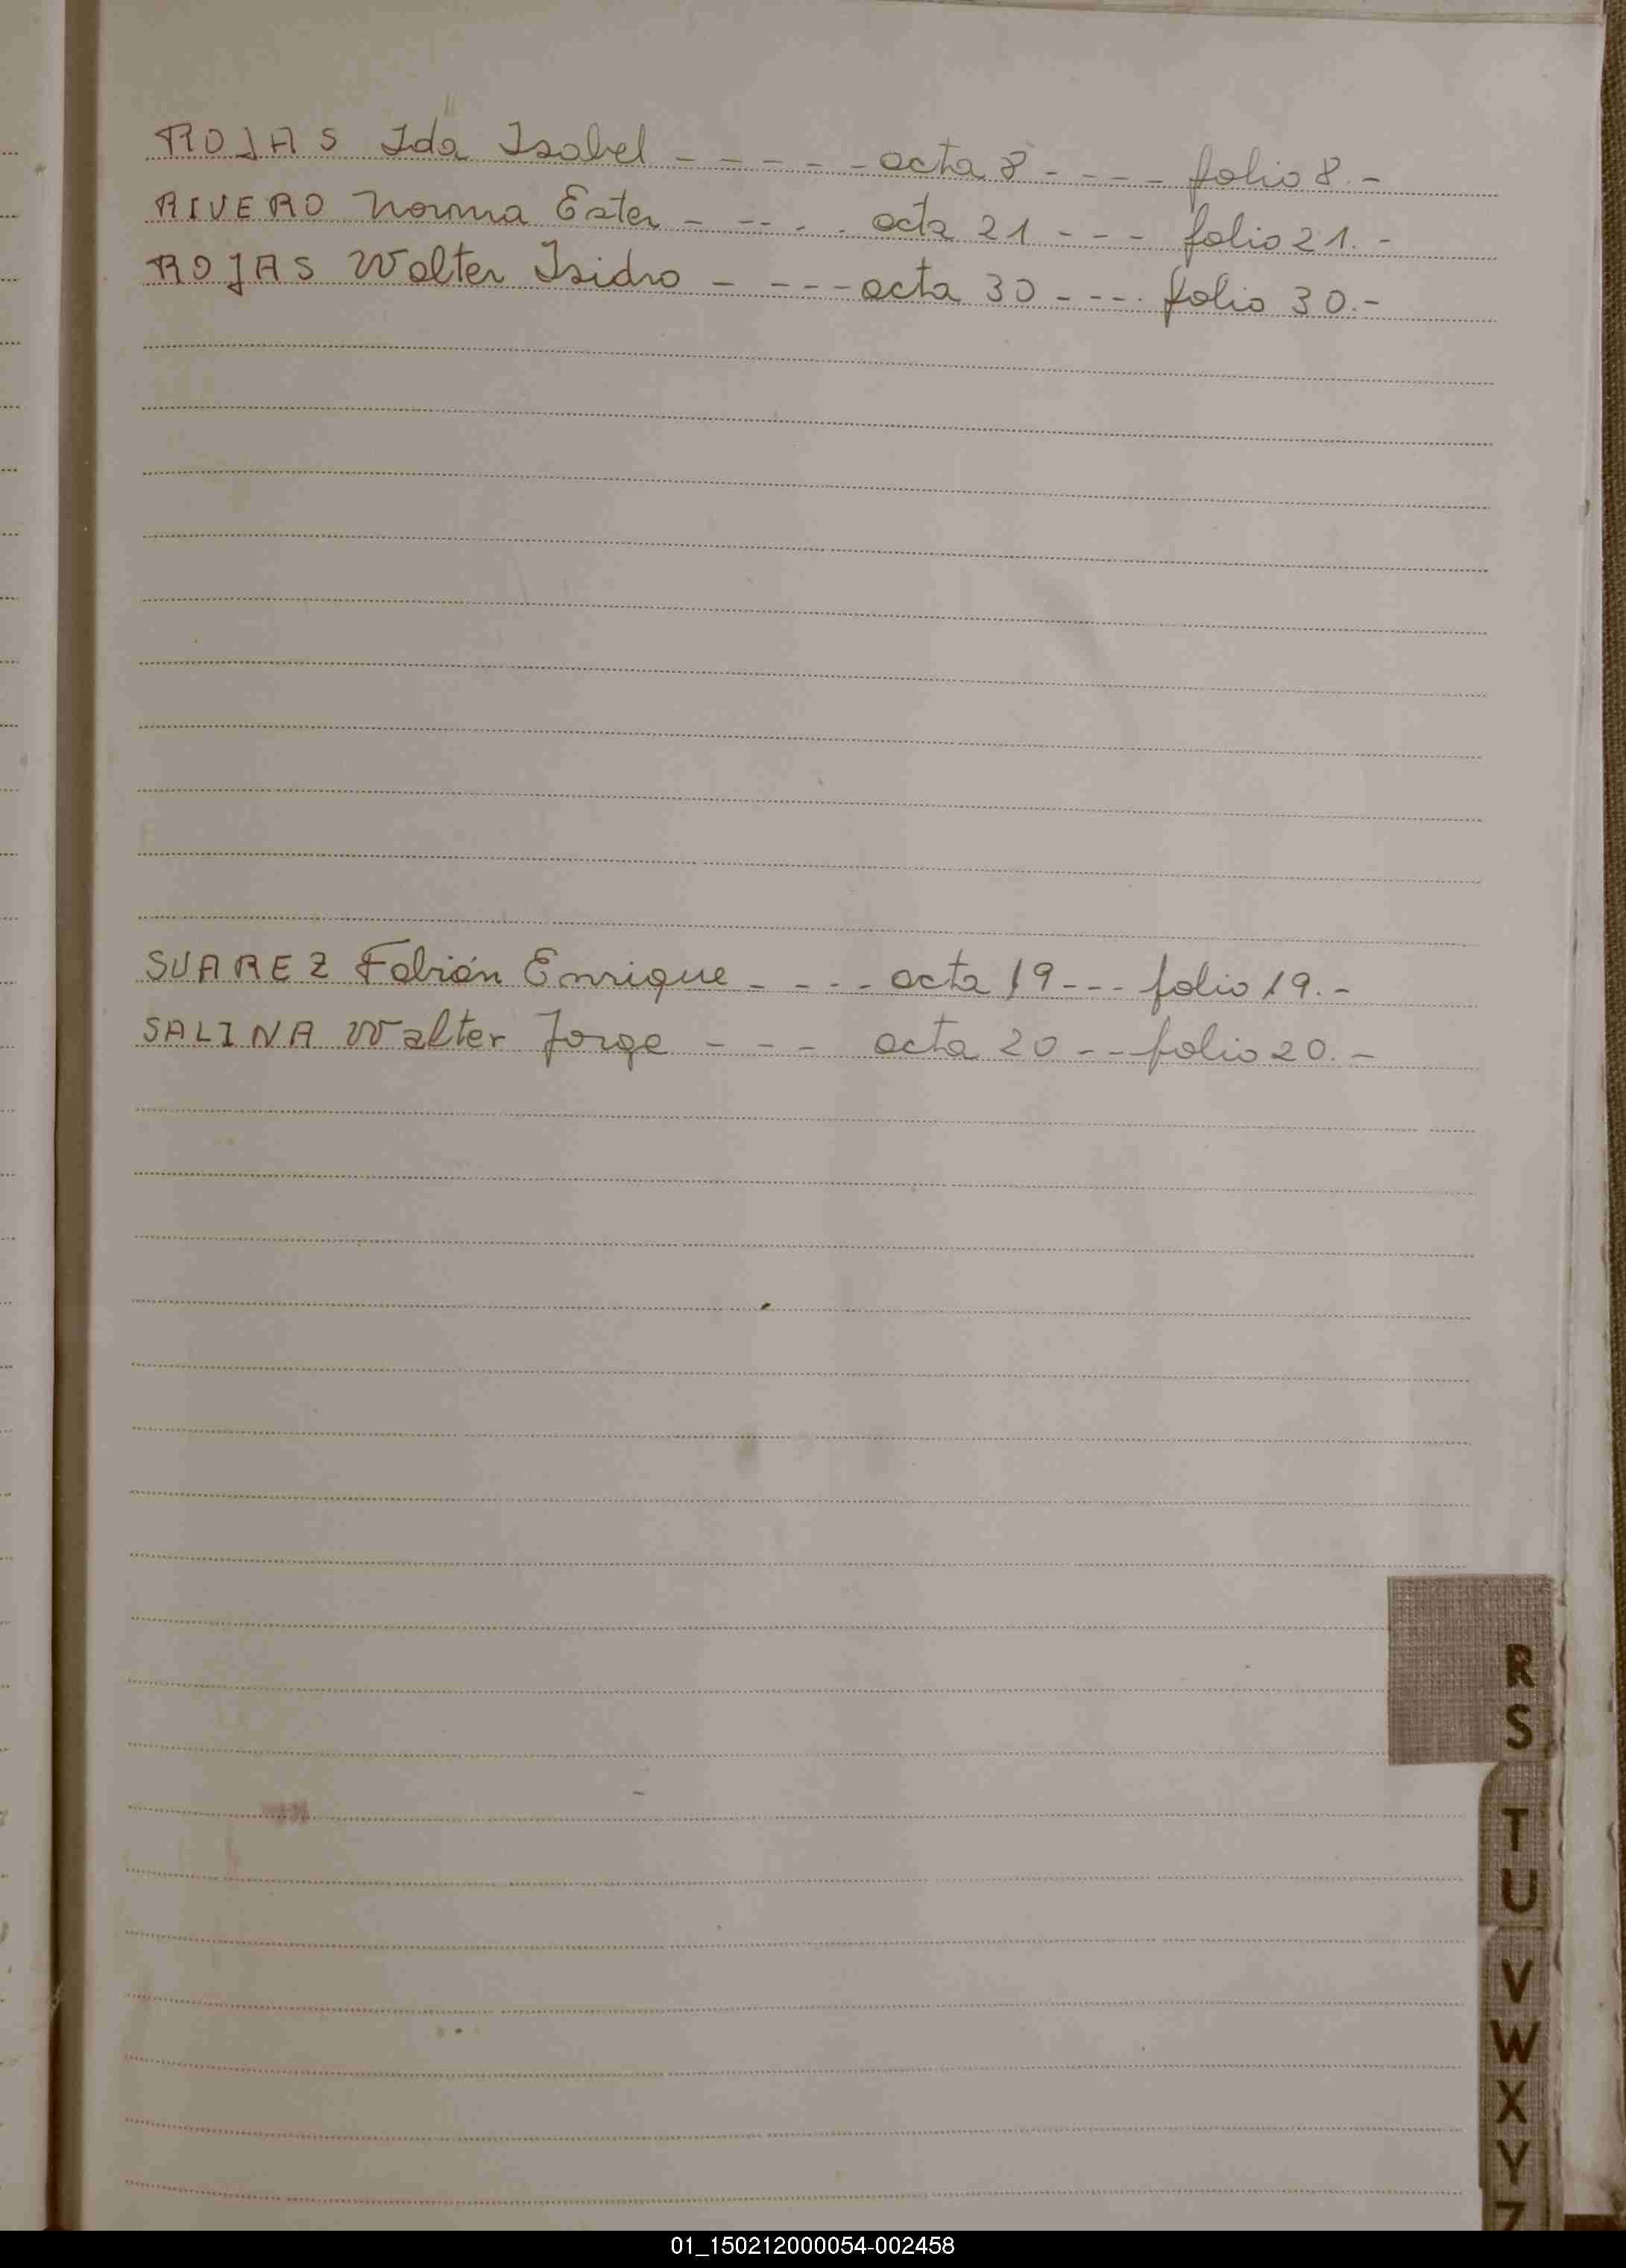 ROJAS Ida Isabel - - - - - acta 8 - - - - folio 8.-
RIVERO Norma Ester - - - - - acta 21 - - - folio 21.-
ROJAS Walter Isidro - - - - acta 30 - - - - folio 30.-
SUAREZ Fabián Enrique - - - - acta 19 - - - folio 19.-
SALINA Walter Jorge - - - acta 20 - - folio 20.-
R
S
T
U
V
W
X
Y
Z
01_150212000054-002458